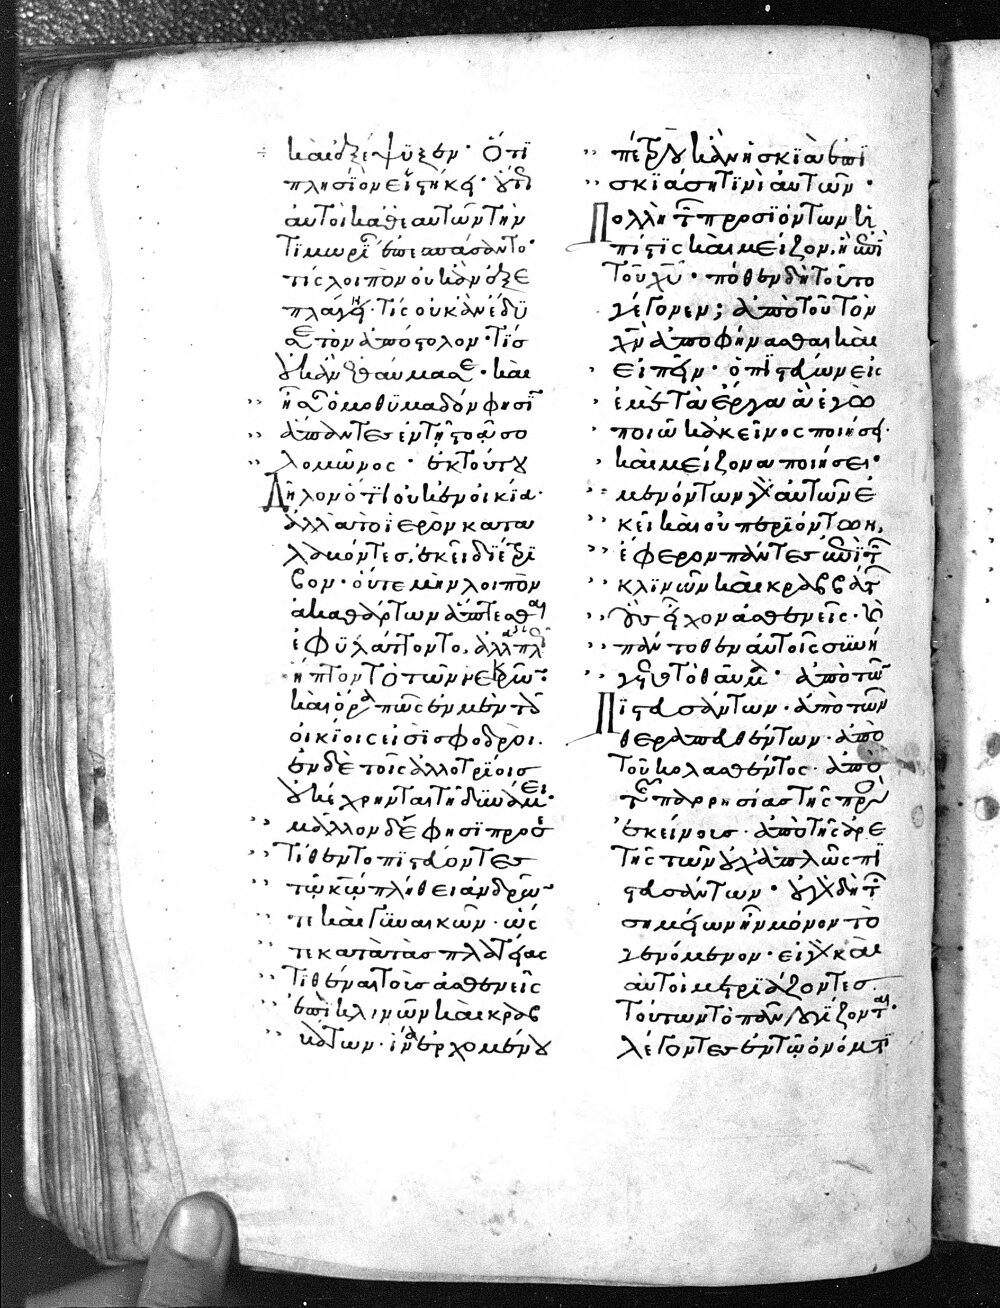 καὶ ἐξέψυξεν· Ὅτι
πλησίον εἱστήκει· οὐδὲ
αὐτοὶ καθ' ἑαυτῶν τὴν
τιμωρίαν ἐπεσπάσαντο·
τίς λοιπὸν οὐκ ἂν ἐξε
πλάγη· τίς οὐκ ἂν ἐδυ
σ τὸν ἀπόστολον· τίς
οὐκ ἂν ἐθαύμασε· καὶ
ἦσαν ὁμοθυμαδόν φησιν
ἅπαντες ἐν τῇ στοᾷ σο
λομῶνος· ἐκ τούτου
Δῆλον ὅτι οὐκ ἐν οἰκία·
ἀλλ' αὐτὸ ἱερὸν κατα
λαβόντες, ἐκεῖ διέτρι
βον· οὔτε μὴν λοιπὸν
ἀκαθάρτων ἅπτεσθαι
ἐφυλάττοντο, ἀλλ' ἁπλῶς
ἥπτοντο τῶν νεκρῶν·
καὶ ὅρα πῶς ἐν μὲν τοῖς
οἰκείοις εἰσὶ σφοδροί·
ἐν δὲ τοῖς ἀλλοτρίοις
οὐ κέχρηνται τῇ δυνάμει·
μᾶλλον δέ φησι προσε
τίθεντο πιστεύοντες
τῷ κῶ πλήθει ἀνδρῶν
τε καὶ γυναικῶν· ὥς
τε κατὰ τὰς πλατείας
τιθέναι τοὺς ἀσθενεῖς
ἐπὶ κλινῶν καὶ κραβ
βάτων· ἵνα ἐρχομένου
πέτρου κἂν ἡ σκιὰ ἐπι
σκιάσῃ τινὶ αὐτῶν·
Πολλὴ τῶν προσιόντων ἡ
πίστις καὶ μείζων, ἢ ἐπὶ
τοῦ χυ· πόθεν δὴ τοῦτο
γέγονεν; ἀπὸ τοῦ τὸν
χν ἀποφήνασθαι καὶ
εἰπεῖν· ὁ πιστεύων εἰς
ἐμὲ τὰ ἔργα ἃ ἐγὼ
ποιῶ κἀκεῖνος ποιήσει·
καὶ μείζονα ποιήσει·
μενόντων γὰρ αὐτῶν ἐ
κεῖ καὶ οὐ περιόντων,
ἔφερον πάντες ἐπὶ τῶν
κλινῶν καὶ κραββάτων
οὓς εἶχον ἀσθενεῖς· καὶ
πάντοθεν αὐτοῖς συνή
γετο τὸ θαῦμα· ἀπὸ τῶν
Πιστευσάντων· ἀπὸ τῶν
θεραπευθέντων· ἀπὸ
τοῦ κολασθέντος· ἀπὸ
τῆς παρρησίας τῆς πρὸς
ἐκείνους· ἀπὸ τῆς ἀρε
τῆς τῶν οὐχ ἁπλῶς πι
στευσάντων· οὐ γὰρ δὴ τῶν
σημείων ἦν μόνον τὸ
γενόμενον· εἰ γὰρ καὶ
αὐτοὶ μετριάζοντες
τούτων τὸ πᾶν λογίζονται·
λέγοντες ἐν τῷ ὀνόματι